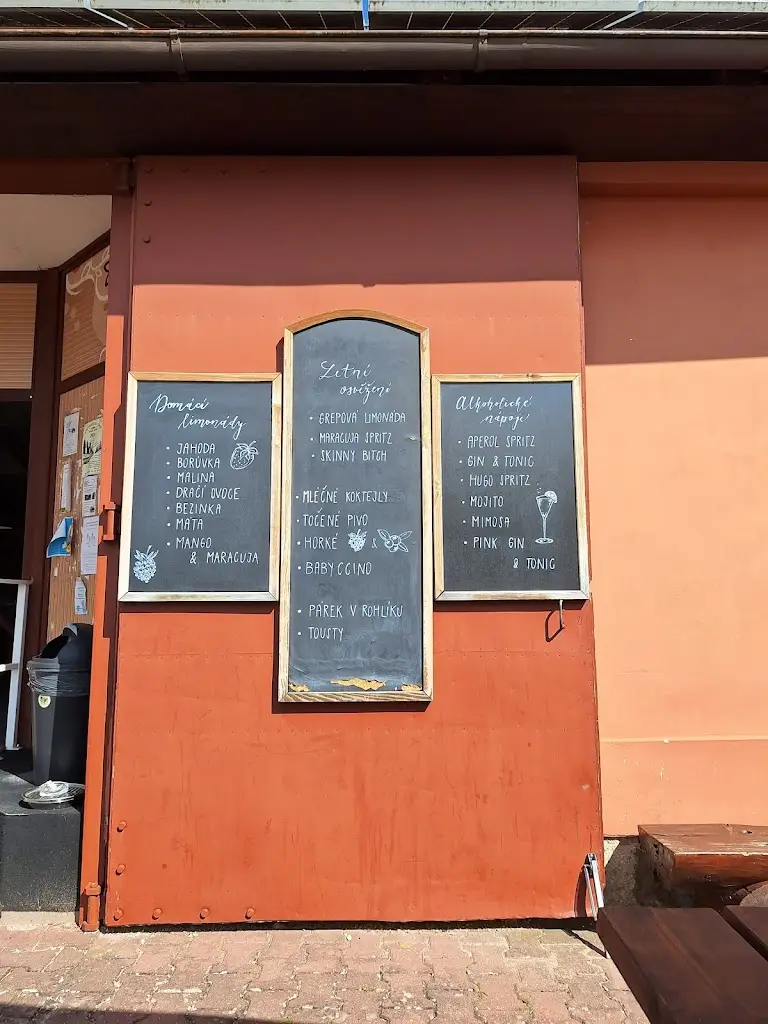 Domácí
limonády
• JAHODA
• BORŮVKA
• MALINA
• DRAČÍ OVOCE
• BEZINKA
• MÁTA
• MANGO
& MARACUJA
Letní
osvěžení
• GREPOVÁ LIMONÁDA
• MARACUJA SPRITZ
• SKINNY BITCH
• MLÉČNÉ KOKTEJLY
• TOČENÉ PIVO
• HORKÉ &
• BABYCCINO
• PÁREK V ROHLÍKU
• TOUSTY
Alkoholické
nápoje
• APEROL SPRITZ
• GIN & TONIC
• HUGO SPRITZ
• MOJITO
• MIMOSA
• PINK GIN
& TONIC